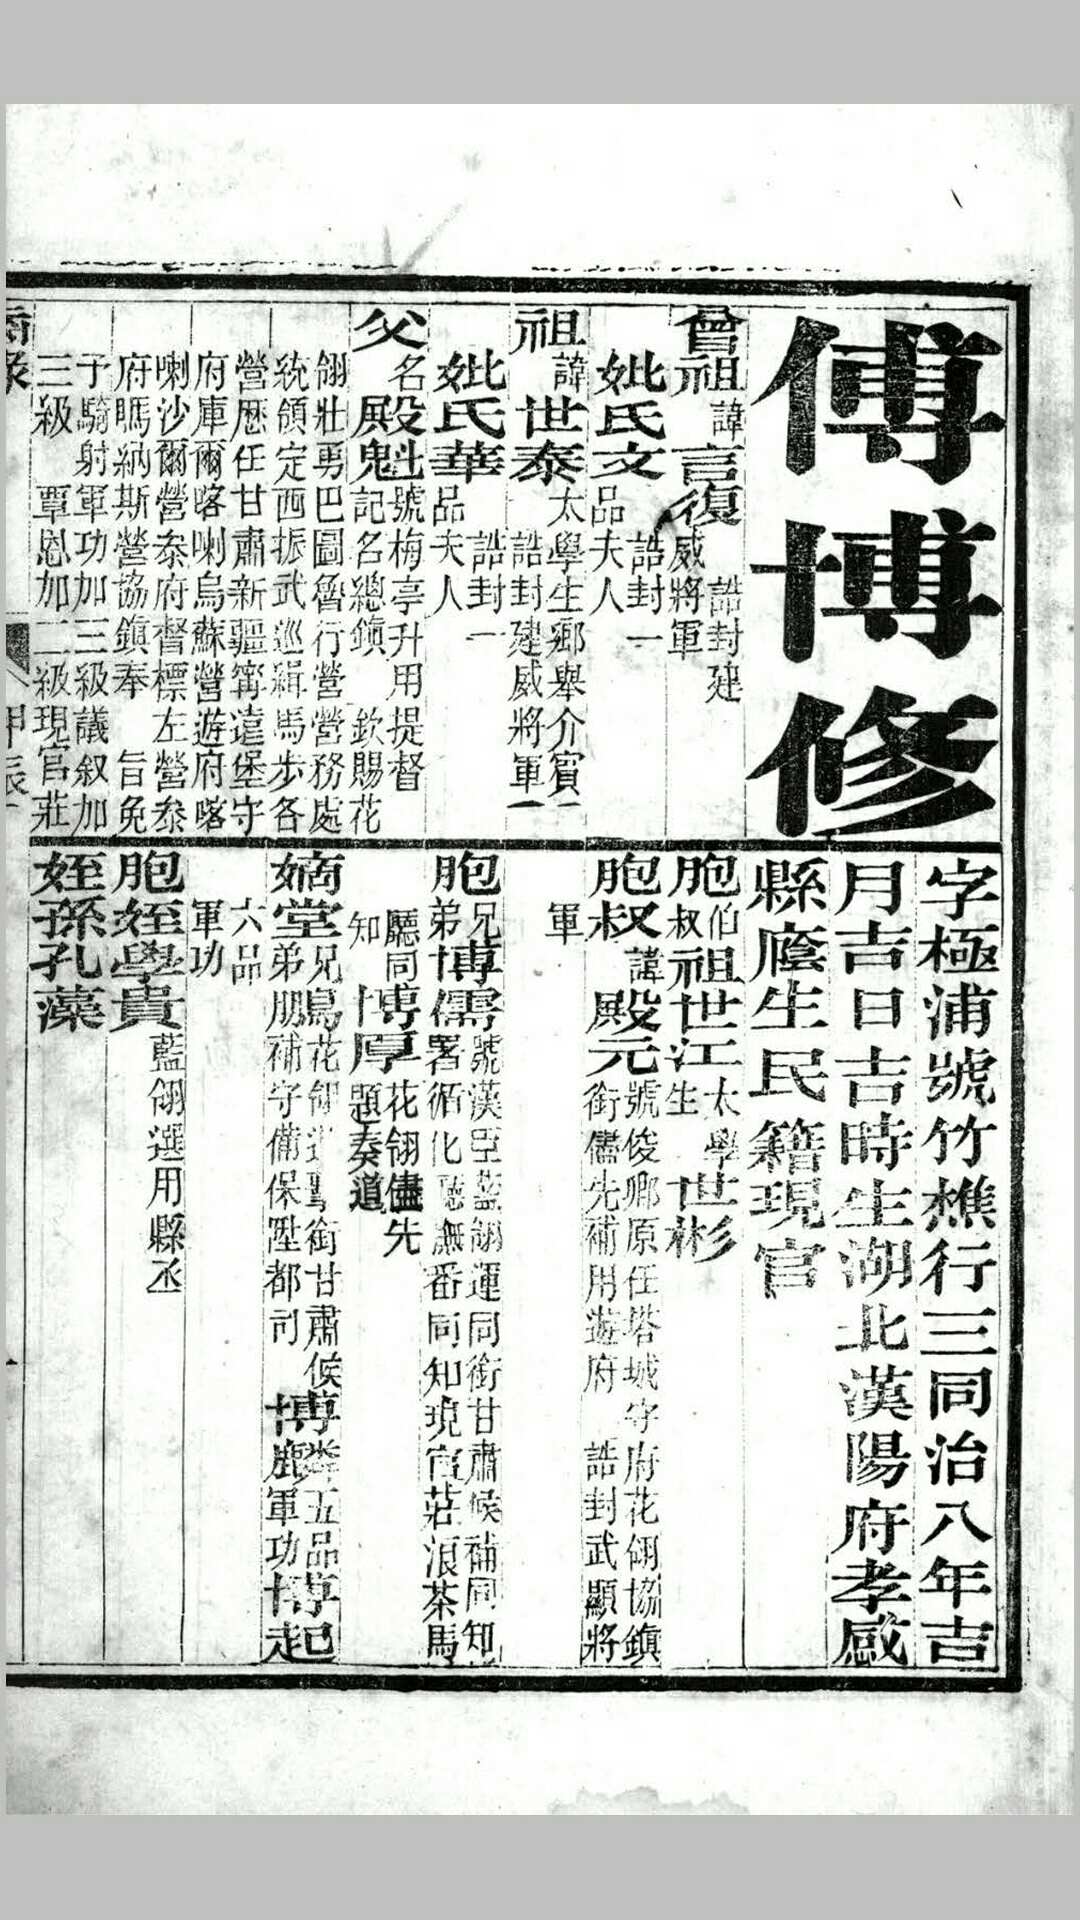 傅博修
曾祖諱言復誥封建
威將軍
妣氏文誥封一
品夫人
祖諱世泰太學生鄉舉介賓
誥封建威將軍
妣氏華誥封一
品夫人
父名殿魁號梅亭升用提督
記名總鎮 欽賜花
翎壯勇巴圖魯行營營務處
統領定西振武巡緝馬步各
營歷任甘肅新疆甯遠堡守
府庫爾喀喇烏蘇營遊府喀
喇沙爾營叅府督標左營叅
府瑪納斯營協鎮奉 旨免
子騎射軍功加三級議叙加
三級 覃恩加二級現官莊
字極浦號竹樵行三同治八年吉
月吉日吉時生湖北漢陽府孝感
縣廕生民籍現官
胞伯叔祖世江太學生 世彬
胞叔諱殿元號俊卿原任塔城守府花翎協鎮
銜儘先補用遊府 誥封武顯將
軍
胞兄弟博儒號漢臣藍翎運同銜甘肅候補同知
署循化廳撫番同知現官莊浪茶馬
廳同知
博厚花翎儘先
題奏道
嫡堂兄弟鵬花翎銜甘肅候
補守備保陞都司
五品軍功
博起
六品
軍功
胞姪學貴藍翎選用縣丞
姪孫孔藻
甲辰